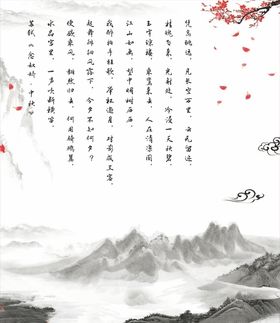 凭高眺远，见长空万里，云无留迹。
桂魄飞来，光射处，冷浸一天秋碧。
玉宇琼楼，乘鸾来去，人在清凉国。
江山如画，望中烟树历历。
我醉拍手狂歌，举杯邀月，对影成三客。
起舞徘徊风露下，今夕不知何夕？
便欲乘风，翻然归去，何用骑鹏翼。
水晶宫里，一声吹断横笛。
苏轼《念奴娇·中秋》